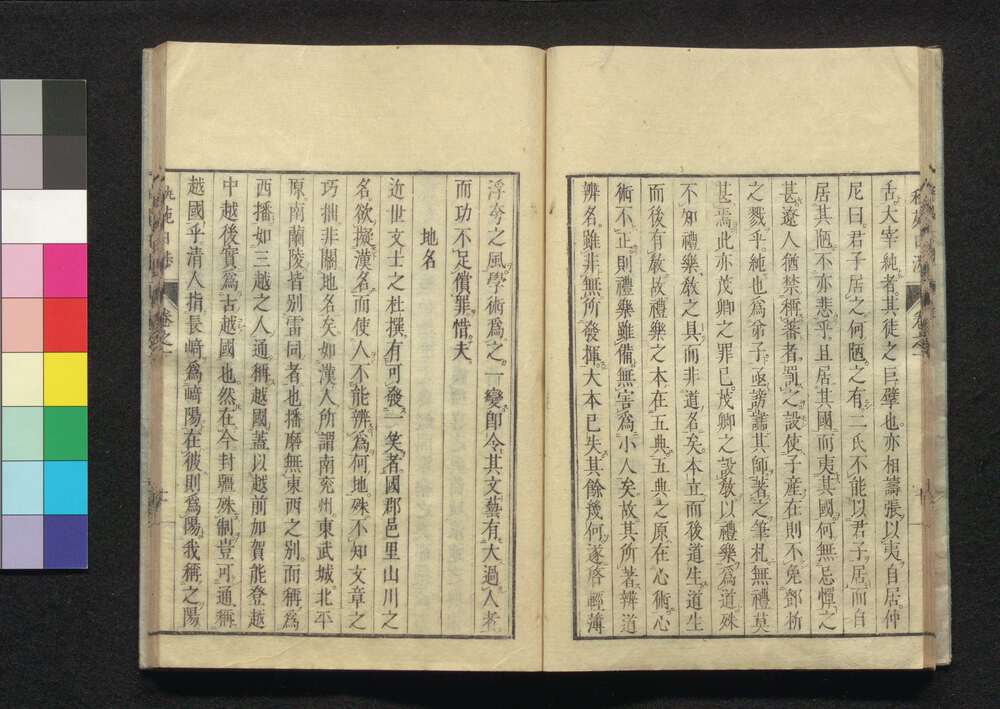 舌大宰純者其徒之巨擘也亦相譸張以夷自居仲
尼曰君子居之何陋之有二氏不能以君子居而自
居其陋不亦悲乎且居其國而夷其國何無忌憚之
甚遼人猶禁稱蕃者罰之設使子產在則不免鄧析
之戮乎純也爲弟子亟謗讟其師著之筆札無禮莫
甚焉此亦茂卿之罪已茂卿之設敎以禮樂爲道殊
不知禮樂敎之具而非道名矣本立而後道生道生
而後有敎故禮樂之本在五典五典之原在心術心
術不正則禮樂雖備無害爲小人矣故其所著辨道
辨名雖非無所發揮大本已失其餘幾何遂啓輕薄
浮兮之風學術爲之一變卽令其文藝有大過人者
而功不足償罪惜夫
地名
近世文士之杜撰有可發一笑者國郡邑里山川之
名欲擬漢名而使人不能辨爲何地殊不知文章之
巧拙非關地名矣如漢人所謂南兖州東武城北平
原南蘭陵皆別雷同者也播磨無東西之別而稱爲
西播如三越之人通稱越國蓋以越前加賀能登越
中越後實爲古越國也然在今封疆殊制豈可通稱
越國乎清人指長崎爲崎陽在彼則爲陽我稱之陽
卷之一